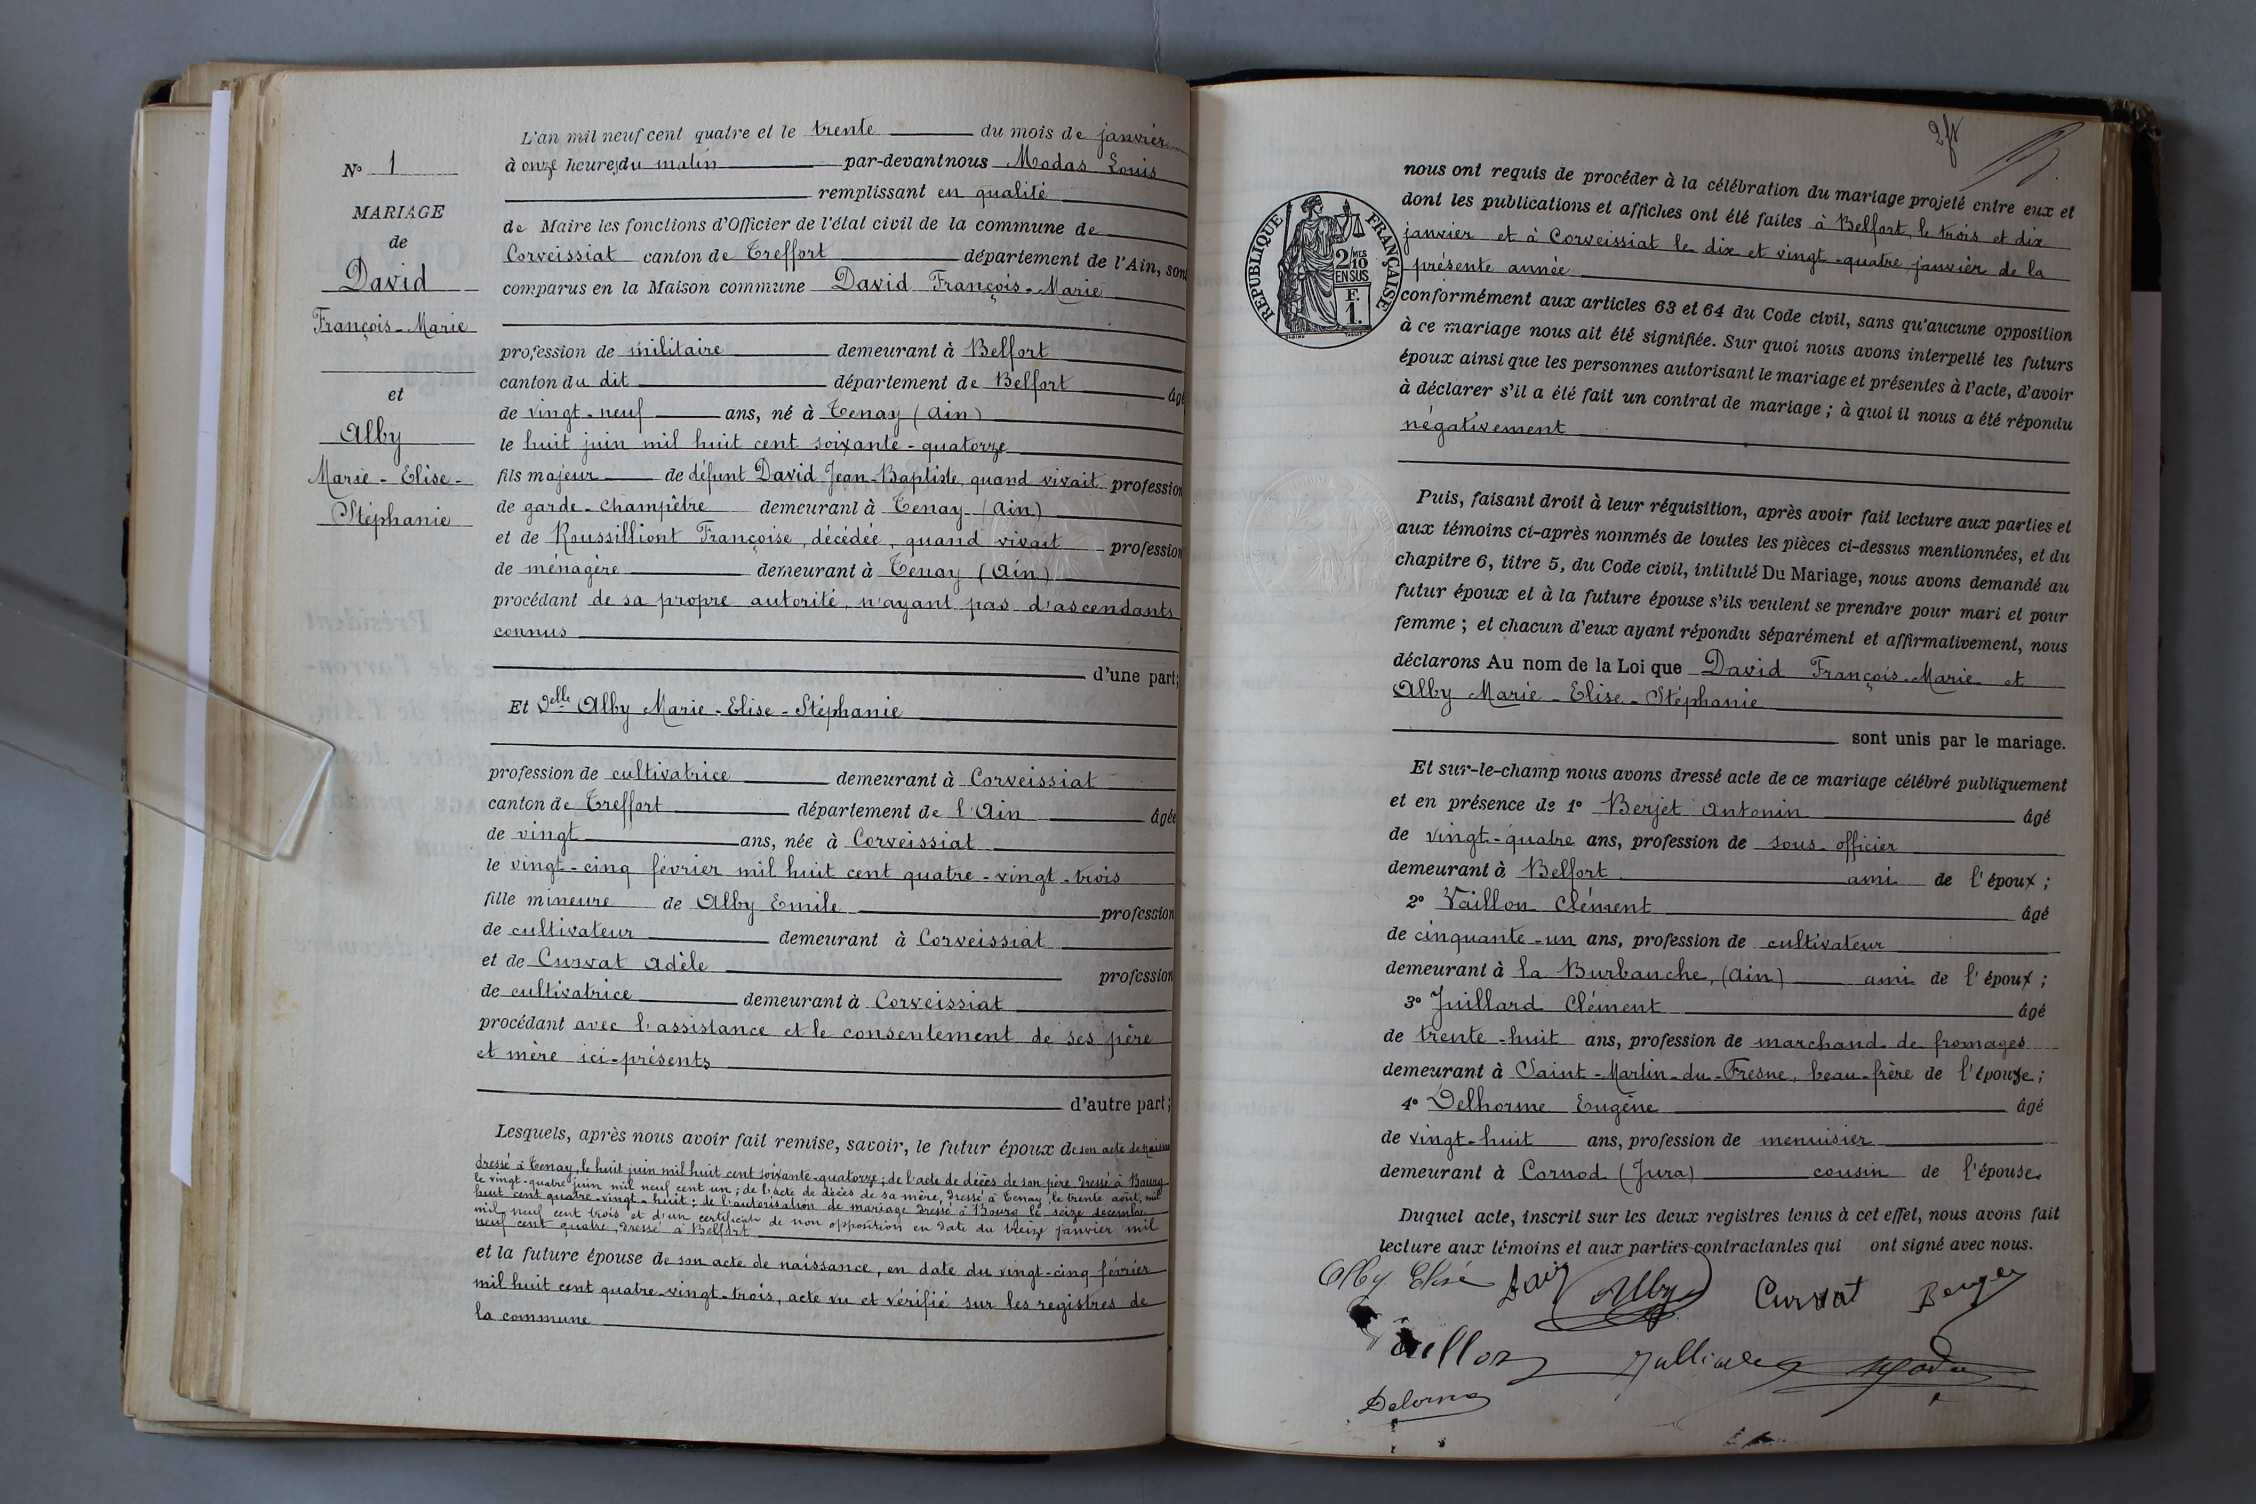 N° 1
MARIAGE
de
David
François-Marie
et
Alby
Marie-Elise-
Stéphanie
L'an mil neuf cent quatre et le trente du mois de janvier
à onze heures du matin par-devant nous Modas Louis
remplissant en qualité
de Maire les fonctions d'Officier de l'état civil de la commune de
Corveissiat canton de Treffort département de l'Ain, sont
comparus en la Maison commune David François-Marie
profession de militaire demeurant à Belfort
canton du dit département de Belfort âgé
de vingt-neuf ans, né à Tenay (Ain)
le huit juin mil huit cent soixante-quatorze
fils majeur de défunt David Jean-Baptiste, quand vivait profession
de garde-champêtre demeurant à Tenay (Ain)
et de Roussilliont Françoise, décédée, quand vivait profession
de ménagère demeurant à Tenay (Ain)
procédant de sa propre autorité, n'ayant pas d'ascendants
connus
d'une part;
Et Delle Alby Marie-Elise-Stéphanie
profession de cultivatrice demeurant à Corveissiat
canton de Treffort département de l'Ain âgée
de vingt ans, née à Corveissiat
le vingt-cinq février mil huit cent quatre-vingt-trois
fille mineure de Alby Emile profession
de cultivateur demeurant à Corveissiat
et de Curvat Adèle profession
de cultivatrice demeurant à Corveissiat
procédant avec l'assistance et le consentement de ses père
et mère ici-présents
d'autre part;
Lesquels, après nous avoir fait remise, savoir, le futur époux de son acte de naissance
dressé à Tenay, le huit juin mil huit cent soixante-quatorze; de l'acte de décès de son père dressé à Bourg
le vingt-quatre juin mil neuf cent un; de l'acte de décès de sa mère, dressé à Tenay, le trente août, mil
huit cent quatre-vingt-huit; de l'autorisation de mariage dressé à Bourg le seize décembre
mil neuf cent trois et d'un certificat de non opposition en date du treize janvier mil
neuf cent quatre, dressé à Belfort
et la future épouse de son acte de naissance, en date du vingt-cinq février
mil huit cent quatre-vingt-trois, acte vu et vérifié sur les registres de
la commune
2 f
REPUBLIQUE FRANÇAISE
2 MES
10
EN SUS
F.
1.
nous ont requis de procéder à la célébration du mariage projeté entre eux et
dont les publications et affiches ont été faites à Belfort, le trois et dix
janvier et à Corveissiat le dix et vingt-quatre janvier de la
présente année
conformément aux articles 63 et 64 du Code civil, sans qu'aucune opposition
à ce mariage nous ait été signifiée. Sur quoi nous avons interpellé les futurs
époux ainsi que les personnes autorisant le mariage et présentes à l'acte, d'avoir
à déclarer s'il a été fait un contrat de mariage; à quoi il nous a été répondu
négativement
Puis, faisant droit à leur réquisition, après avoir fait lecture aux parties et
aux témoins ci-après nommés de toutes les pièces ci-dessus mentionnées, et du
chapitre 6, titre 5, du Code civil, intitulé Du Mariage, nous avons demandé au
futur époux et à la future épouse s'ils veulent se prendre pour mari et pour
femme; et chacun d'eux ayant répondu séparément et affirmativement, nous
déclarons Au nom de la Loi que David François-Marie et
Alby Marie-Elise-Stéphanie
sont unis par le mariage.
Et sur-le-champ nous avons dressé acte de ce mariage célébré publiquement
et en présence de 1° Berjet Antonin âgé
de vingt-quatre ans, profession de sous-officier
demeurant à Belfort ami de l'époux;
2° Vaillon Clément âgé
de cinquante-un ans, profession de cultivateur
demeurant à la Burbanche, (Ain) ami de l'époux;
3° Juillard Clément âgé
de trente-huit ans, profession de marchand de fromages
demeurant à Saint-Martin-du-Fresne, beau-frère de l'épouse;
4° Delhorme Eugène âgé
de vingt-huit ans, profession de menuisier
demeurant à Cornod (Jura) cousin de l'épouse
Duquel acte, inscrit sur les deux registres tenus à cet effet, nous avons fait
lecture aux témoins et aux parties contractantes qui ont signé avec nous.
Alby Elise Alby Curvat
Vaillon
Delorme